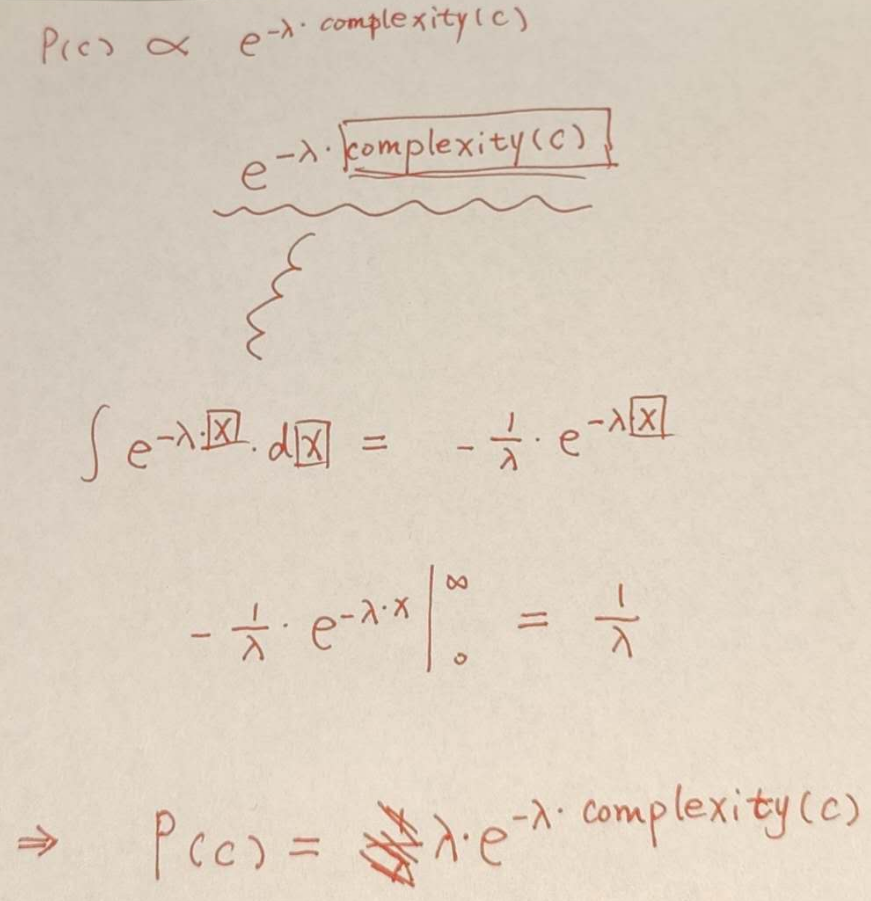 P(c) ∝ e^{-λ· complexity(c)}
e^{-λ· complexity(c)}
∫ e^{-λ·x} · dx = - 1/λ · e^{-λx}
- 1/λ · e^{-λ·x} |_0^∞ = 1/λ
⇒ P(c) = λ·e^{-λ· complexity(c)}